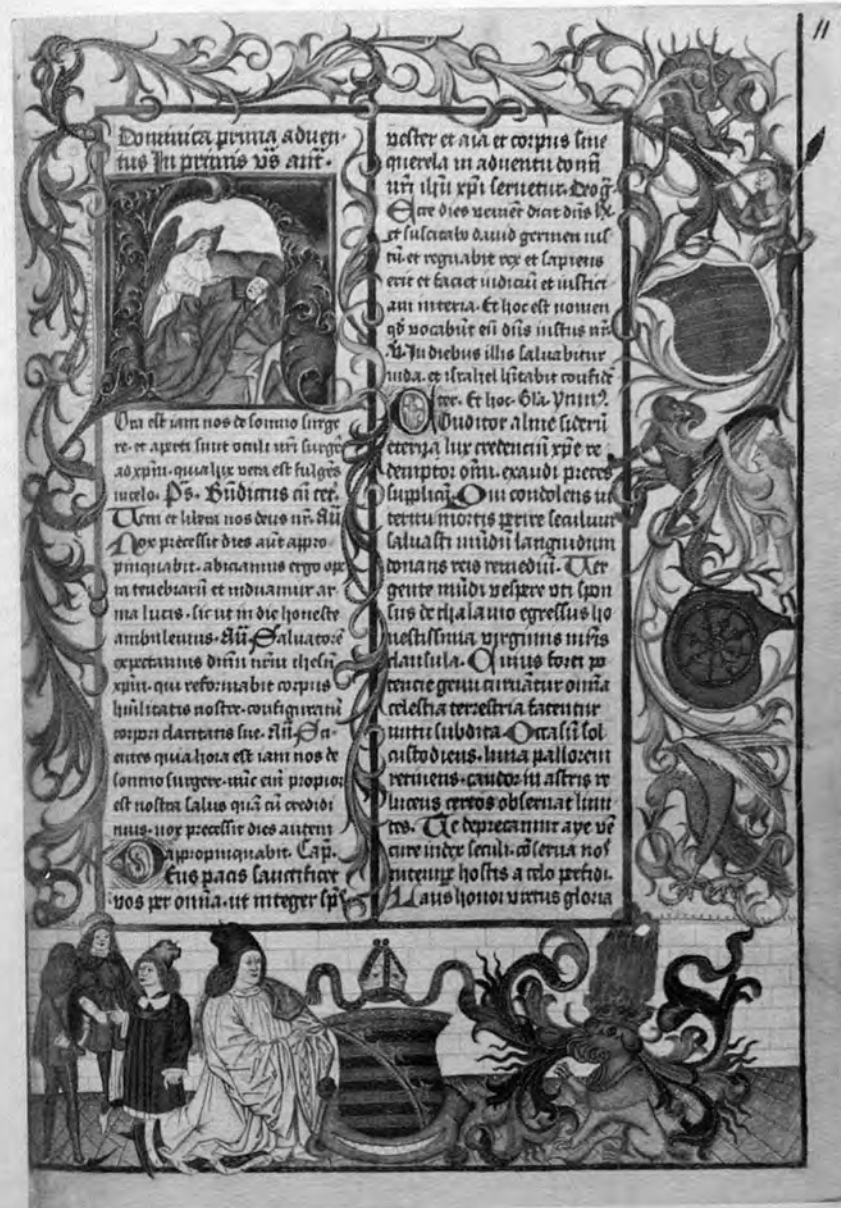 11
Dominica prima aduen-
tus In primis vs̄ ant̄.
Ora est iam nos de somno surge
re. et aperti sunt oculi nr̄i surgēs
ad xpm̄. quia lux vera est fulgēs
in celo. Ps. Bn̄dictus cū cet.
Veni et libera nos deus nr̄. Añ
Nox precessit dies aūt appro
pinquabit. abiciamus ergo ope
ra tenebrarū et induamur ar
ma lucis. sic ut in die honeste
ambulemus. Añ Saluatorē
expectamus dn̄m nr̄m ihesū
xpm̄. qui reformabit corpus
hūilitatis nostre. configuratū
corpori claritatis sue. Añ Sci-
entes quia hora est iam nos de
somno surgere. nūc em̄ propior
est nostra salus quā cū credidi
mus. nox precessit dies autem
appropinquabit. Cap.
Deus pacis sanctificet
vos per om̄a. ut integer sp̄s
vester et aīa et corpus sine
querela in aduentu domī
nr̄i ih̄u xp̄i seruetur. Deo ḡ.
Ecce dies veniēt dicit dn̄s
et suscitabo dauid germen ius
tū et regnabit rex et sapiens
erit et faciet iudiciū et iustici
am in terra. Et hoc est nomen
qd̄ vocabūt eū dn̄s iustus nr̄.
V. In diebus illis saluabitur
iuda. et israhel h̄itabit confidē
ter. Et hoc. Gl̄a. Ymn⁹.
Conditor alme siderū
eterna lux credenciū xp̄e re
demptor om̄. exaudi preces
supplicū. Qui condolens in
teritu mortis perire seculum
saluasti mūdū languidum
donans reis remediū. Ver
gente mūdi vespere vti spon
sus de thalamo egressus ho
nestissima virginis mr̄is
clausula. Cuius forti po
tencie genu curuātur om̄a
celestia terrestria fatentur
nutu subdita. Occasū sol
custodiens. luna pallorem
retinens. candor in astris re
lucens certos obseruat limi
tes. Te deprecamur aye vē
ture iudex seculi. cōserua nos
in tempe hostis a telo perfidi.
Laus honor virtus gloria